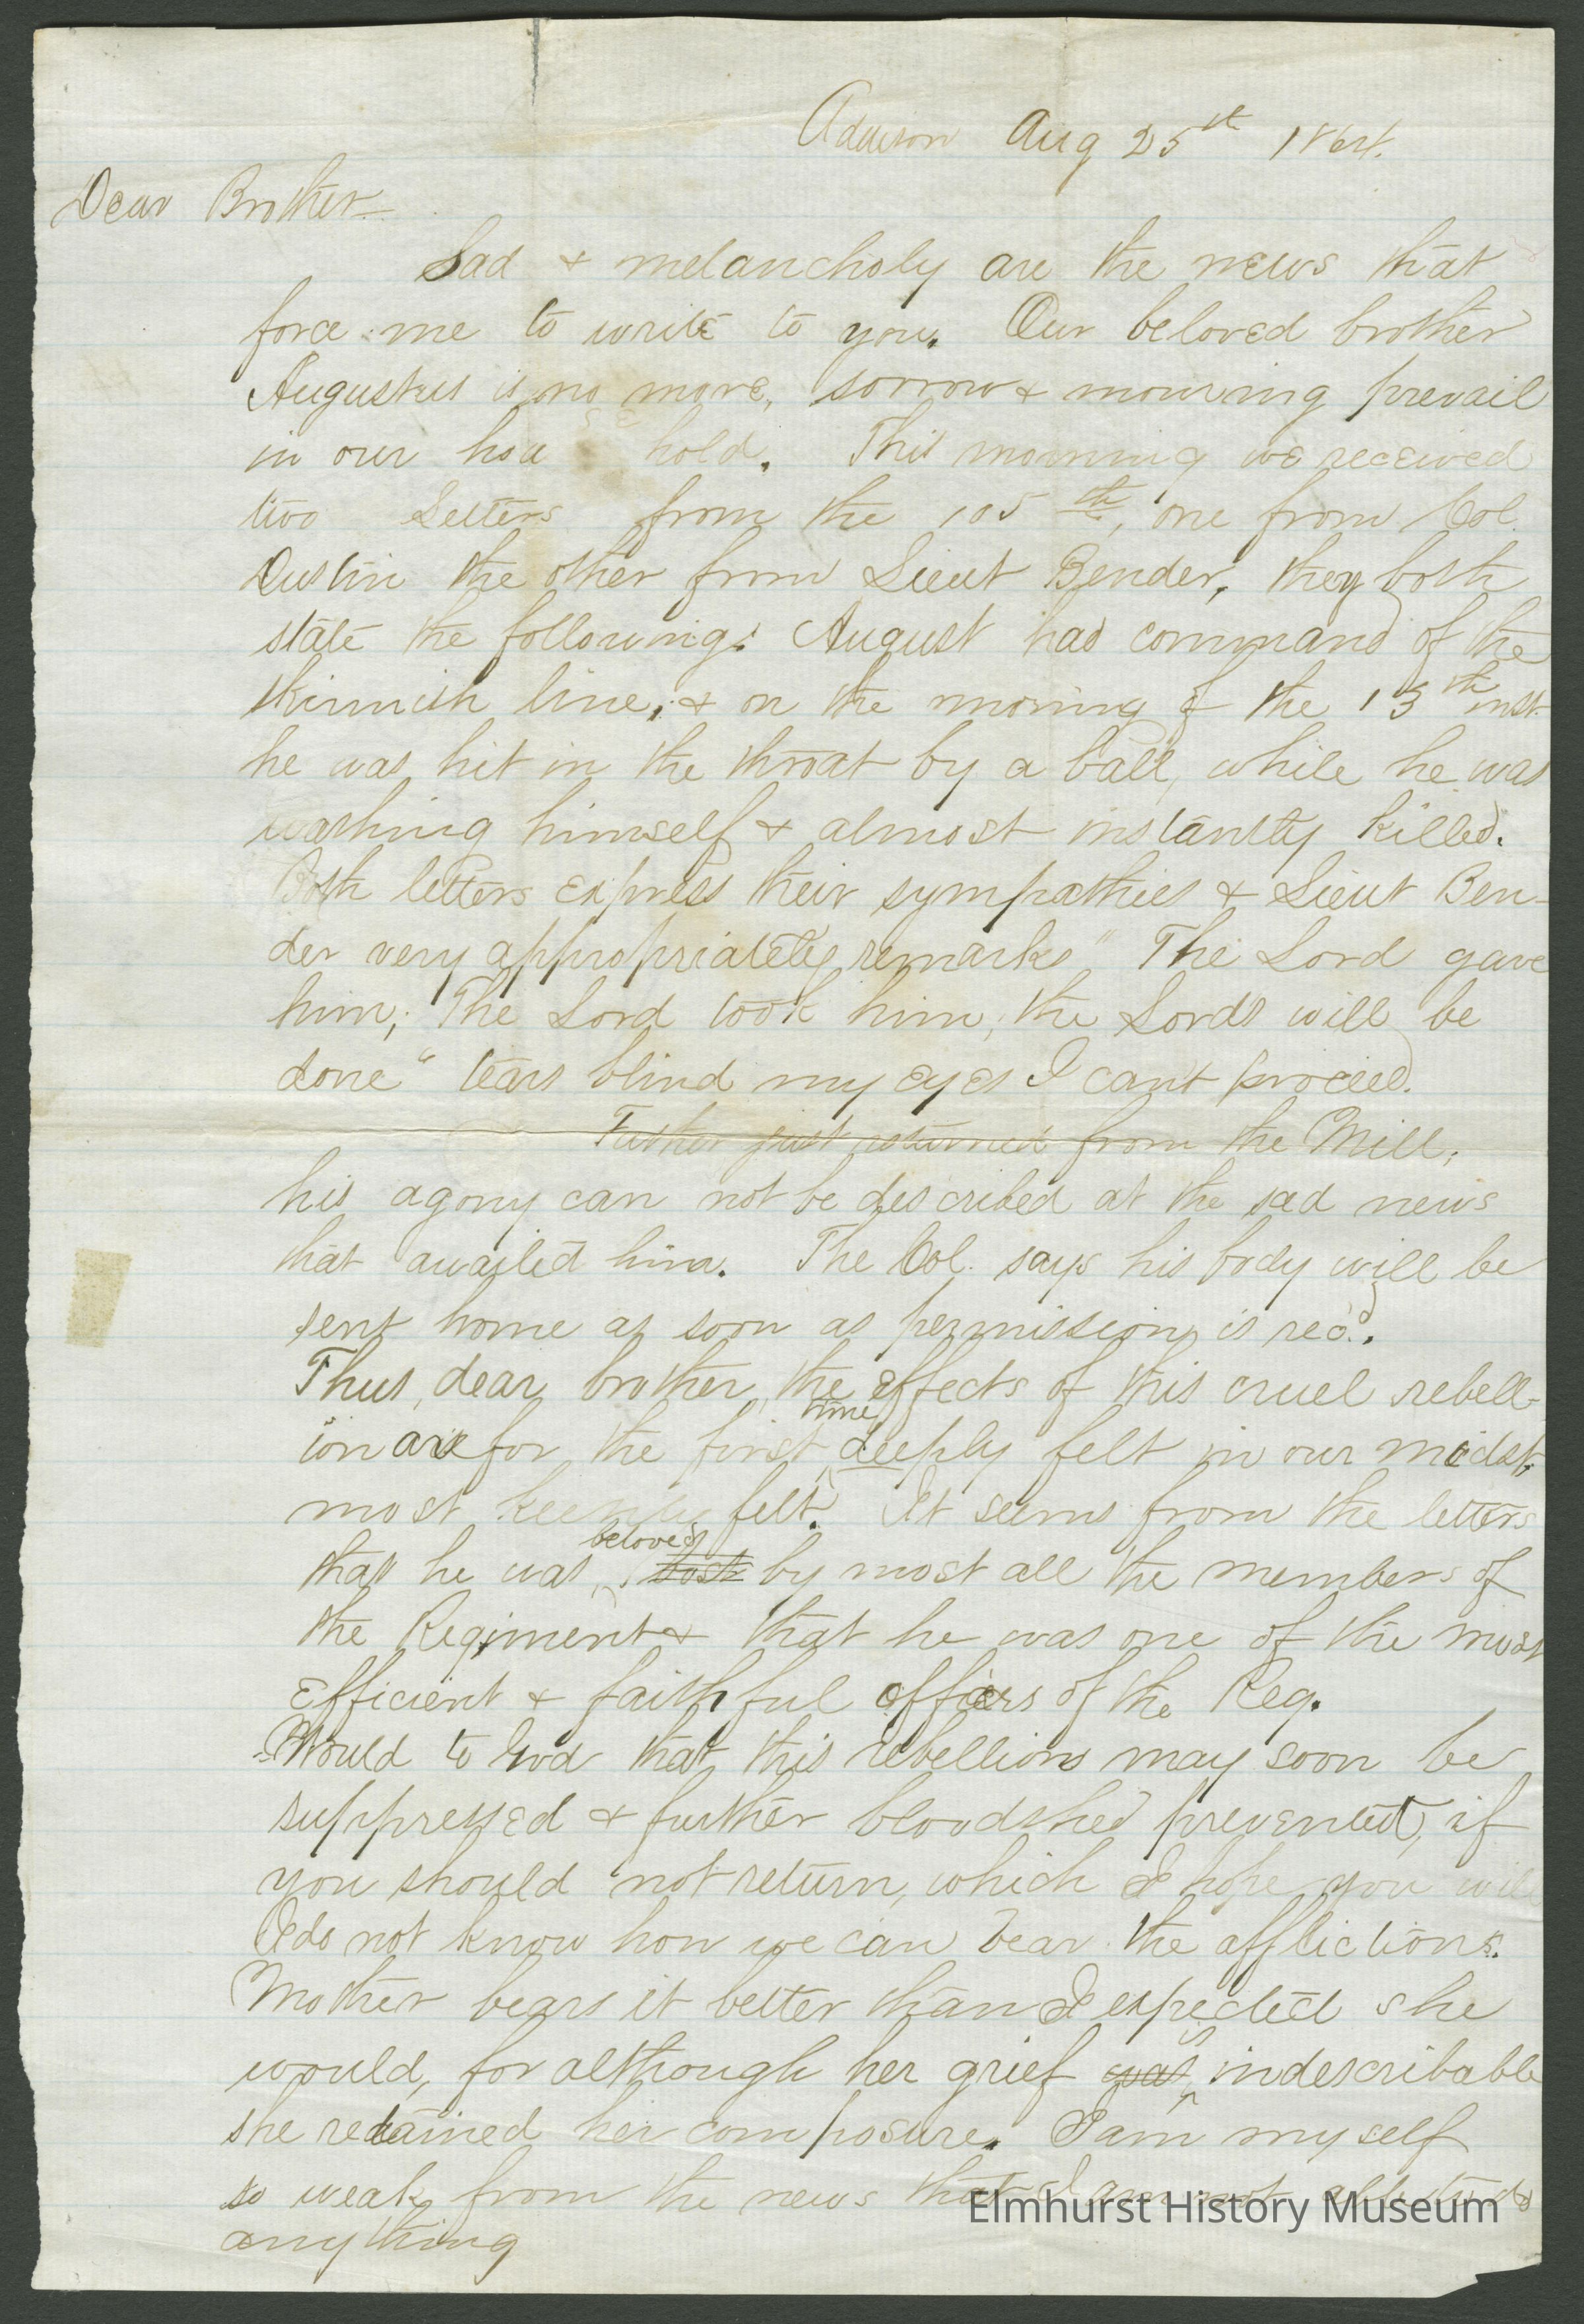 Addison Aug 25th 1864.
Dear Brother
Sad & melancholy are the news that
force me to write to you. Our beloved brother
Augustus is no more, sorrow & mourning prevail
in our house hold. This morning we received
two letters from the 105th, one from Col.
Dustin the other from Lieut Bender, they both
state the following: August had command of the
skirmish line, & on the morning of the 13th inst.
he was hit in the throat by a ball, while he was
washing himself & almost instantly killed.
Both letters express their sympathies & Lieut Ben-
der very appropriately remarks "The Lord gave
him; The Lord took him; the Lords will be
done" tears blind my eyes I can't proceed.
Father just returned from the Mill,
his agony can not be described at the sad news
that awaited him. The Col. says his body will be
sent home as soon as permission is rec'd.
Thus, dear brother, the effects of this cruel rebell-
ion are for the first time deeply felt in our midst,
most keenly felt. It seems from the letters
that he was beloved by most all the members of
the Regiment & that he was one of the most
efficient & faithful officers of the Reg.
Would to God that this rebellion may soon be
suppressed & further bloodshed prevented, if
you should not return, which I hope you will
I do not know how we can bear the afflictions.
Mother bears it better than I expected she
would, for although her grief was is indescribable
she retained her composure. I am myself
so weak from the news that I am not able to do
anything
Elmhurst History Museum